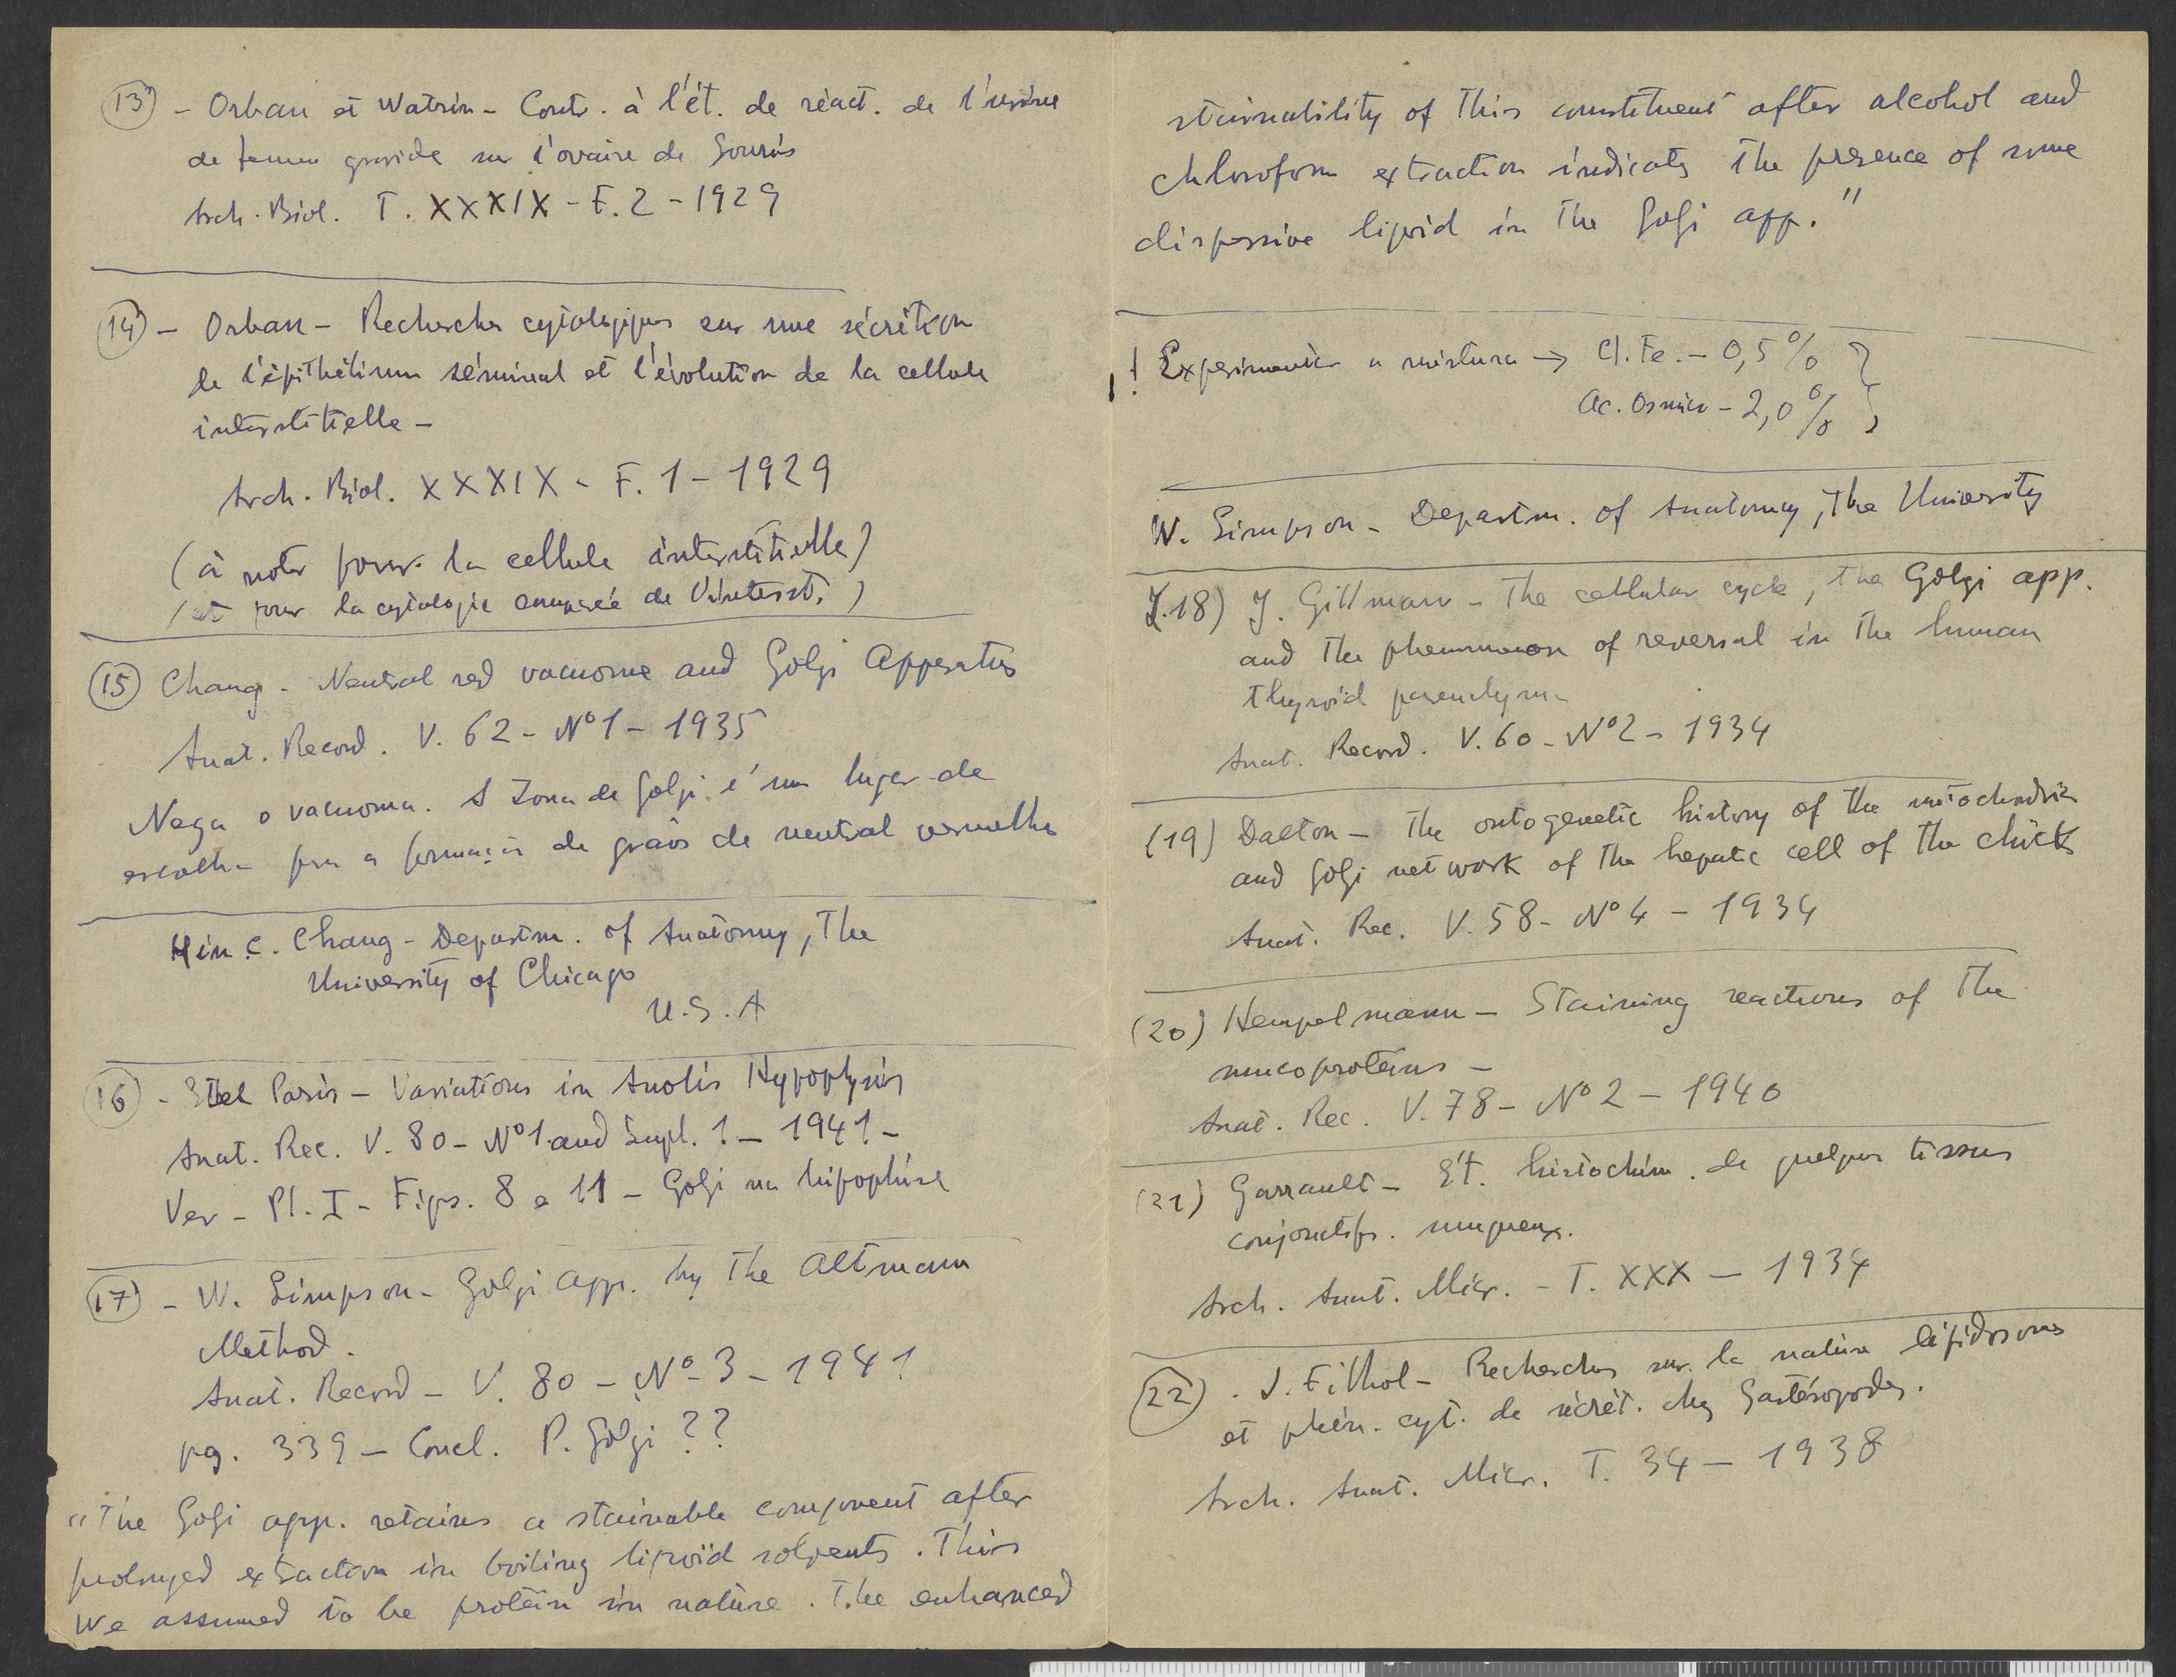 (13) - Orban et Watrin - Contr. à l'ét. de réact. de l'urine
de femme gravide sur l'ovaire de Souris
Arch. Biol. T. XXXIX - F. 2 - 1929
(14) - Orban - Recherches cytologiques sur une sécrétion
de l'épithélium séminal et l'évolution de la cellule
interstitielle -
Arch. Biol. XXXIX - F. 1 - 1929
(à noter pour la cellule interstitielle)
(et pour la cytologie comparée de l'interst.)
(15) Chang - Neutral red vacuome and Golgi Apparatus
Anat. Record. V. 62 - Nº 1 - 1935
Nega o vacuoma. A Zona de Golgi é um lugar de
escolha pra a formação de grãos de neutral vermelho
Hin C. Chang - Departm. of Anatomy, The
University of Chicago
U.S.A
(16) - Paris - Variations in Anolis Hypophysis
Anat. Rec. V. 80 - Nº 1 and Supl. 1 - 1941 -
Ver - Pl. I - Figs. 8 e 11 - Golgi na hipophise
(17) - W. Simpson - Golgi app. by the Altmann
Method.
Anat. Record - V. 80 - Nº 3 - 1941
pg. 339 - Concl. P. Golgi ??
"The Golgi app. retains a stainable component after
prolonged extraction in boiling lipoid solvents. This
we assumed to be protein in nature. The enhanced
stainability of this constituent after alcohol and
chloroform extraction indicates the presence of some
dispersive lipoid in the Golgi app."
! Experimentar a mistura → Cl. Fe. - 0,5% }
Ac. Osmico - 2,0% }
W. Simpson - Departm. of Anatomy, The University
18) J. Gillman - The cellular cycle, the Golgi app.
and the phenomenon of reversal in the human
thyroid parenchyma
Anat. Record. V. 60 - Nº 2 - 1934
(19) Dalton - The ontogenetic history of the mitochondria
and Golgi network of the hepatic cell of the chick
Anat. Rec. V. 58 - Nº 4 - 1934
(20) Hempelmann - Staining reactions of the
mucoproteins -
Anat. Rec. V. 78 - Nº 2 - 1940
(21) Garrault - Ét. histochim. de quelques tissus
conjonctifs. muqueux.
Arch. Anat. Micr. - T. XXX - 1934
(22) . J. Filhol - Recherches sur la nature lépidosomes
et phén. cyt. de sécrét. chez Gastéropodes.
Arch. Anat. Micr. T. 34 - 1938